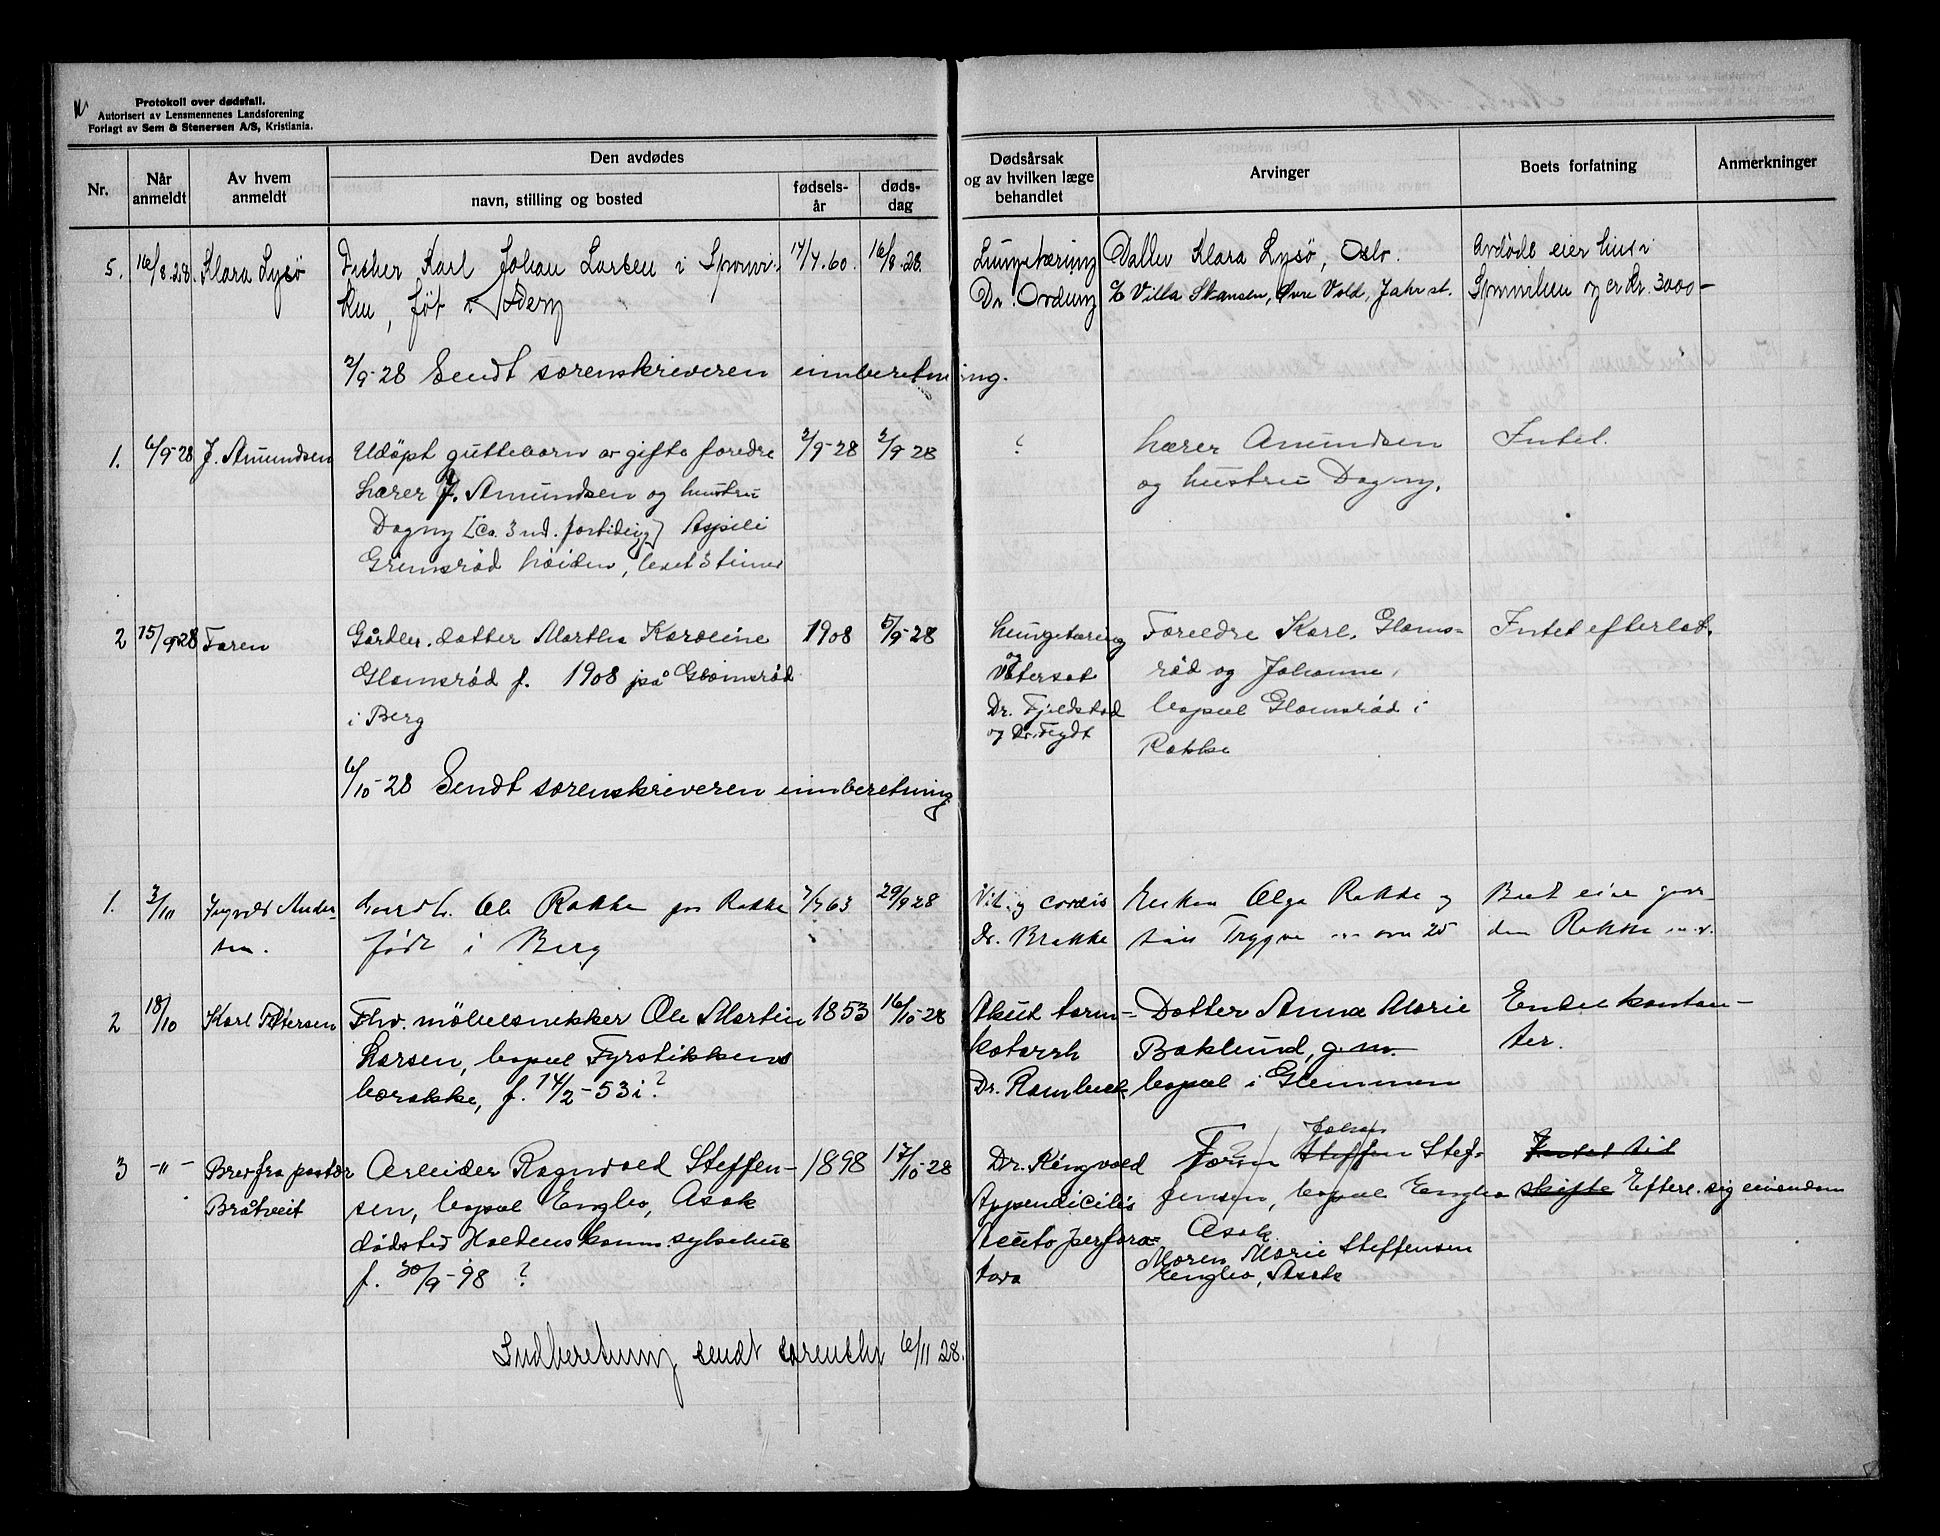 Protokoll over dødsfall.
Autorisert av Lensmennenes Landsforening
Forlagt av Sem & Stenersen A/S, Kristiania.
Nr.
Når anmeldt
Av hvem anmeldt
Den avdødes
navn, stilling og bosted
fødsels-år
døds-dag
Dødsårsak og av hvilken læge behandlet
Arvinger
Boets forfatning
Anmerkninger
5. 16/8.28. Klara Lysø
Fisker Karl Johan Larsen i Sponvi-
ken, føt i
17/4.60. 16/8-28.
Lungetæring
Dr. Ording
Datter Klara Lysø, Oslo.
c/o Villa Skansen, Øvre Vold, Jahr st.
Avdøde eier hus i
Sponviken og er kr. 3000-
2/9-28 Sendt sorenskriveren innberetning.
1. 6/9-28 J. Amundsen
Udöpt guttebarn av gifte foredre
lærer J. Amundsen og hustru
Dagny [ca. 3 md. fortidlig] Aspeli
Grimsrød høiden, levet 3 timer
2/9-28 2/9-28
?
Lærer Amundsen
og hustru Dagny.
Intet.
2 15/9-28 Faren
Gårdbr. datter Martha Karoline
Glomsrød f. 1908 på Glomsrød
i Berg
1908 5/9-28
Lungetæring
og
Vatersot
Dr. Fjeldstad
og Dr. Feydt
Foreldre Karl Gloms-
rød og Johanne,
bopæl Glomsrød i
Rokke
Intet efterlat.
6/10-28 Sendt sorenskriveren innberetning
1. 3/10 Ingvald Ander-
sen.
Gårdb. Ole Rokke på Rokke
født i Berg
7/7 63 29/9 28
Vit. cordis
Dr. Brekke
Enken Olga Rokke og
søn Trygve over 25
Boet eier går-
den Rokke
2 18/10 Karl Pettersen
Fhv. møbelsnekker Ole Martin
Larsen, bopæl Fyrstikkens
barakke, f. 14/2-53 i ?
1853 16/10-28
Akut tarm-
katarrh
Dr. Rambæk
Datter Anna Marie
Baklund, g.m.
bopæl i Glemmen
Endel kontan-
ter.
3 -"- Brev fra pastor
Bråtveit
Arbeider Ragnvald Steffen-
sen, bopæl Englev, Asak
dødsted Haldens komm. sykehus
f. 30/9-98 ?
1898 17/10-28
Dr. Ringvold
Appendicitis
Acuto perfora-
tava
Faren Johan Steffen Stef-
fensen, bopæl Englev
Asak
Moren Marie Steffensen
Englev, Asak
Intet til
skifte Efterl. sig eiendom
Indberetning sendt sorenskr 6/11 28.